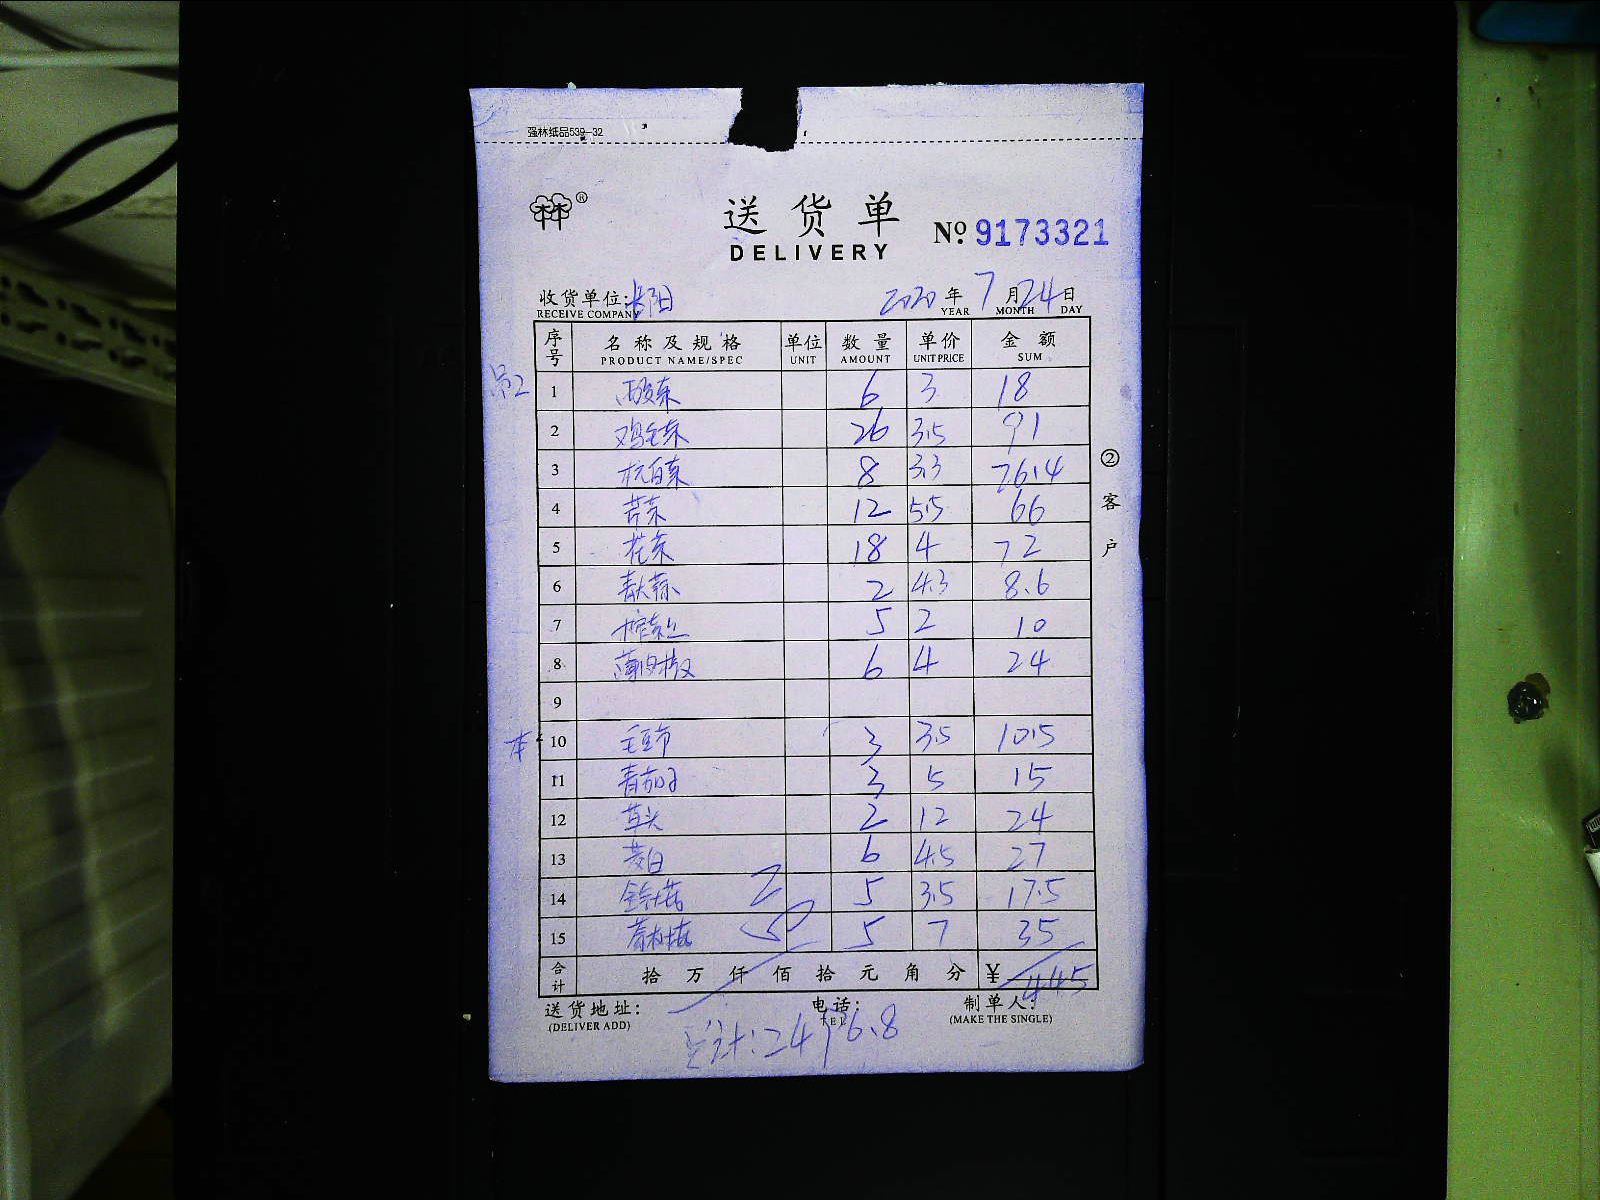 强林纸品539-32
送货单
DELIVERY
Nº 9173321
收货单位: 2020 年 7 月 24 日
RECEIVE COMPANY YEAR MONTH DAY
序号 名称及规格 单位 数量 单价 金额
PRODUCT NAME/SPEC UNIT AMOUNT UNIT PRICE SUM
1 酸菜 6 3 18
2 鸡毛菜 26 3.5 91
3 杭白菜 8 3.3 26.4
4 苦菜 12 5.5 66
5 花菜 18 4 72
6 青大蒜 2 4.3 8.6
7 榨菜丝 5 2 10
8 薄皮椒 6 4 24
9
10 毛豆节 3 3.5 10.5
11 青茄子 3 5 15
12 草头 2 12 24
13 茭白 6 4.5 27
14 5 3.5 17.5
15 5 7 35
合计 拾万仟佰拾元角分 ¥ 445
② 客户
送货地址: 电话: 制单人:
(DELIVER ADD) TEL (MAKE THE SINGLE)
总计:2416.8